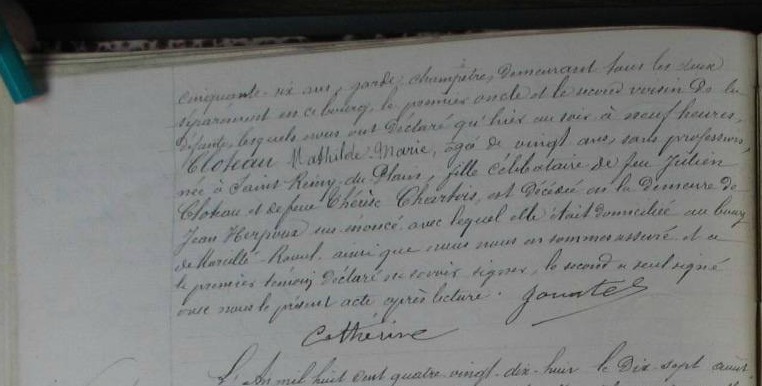 cinquante-six ans, garde champêtre, demeurant tous les deux
séparément en ce bourg, le premier oncle et le second voisin de la
défunte, lesquels nous ont déclaré qu'hier au soir à neuf heures,
Cloteau Mathilde-Marie, âgée de vingt ans, sans profession,
née à Saint-Rémy-du-Plain, fille célibataire de feu Julien
Cloteau et de feue Thérèse Charbois, est décédée en la demeure de
Jean Herpoux sus-énoncé, avec lequel elle était domiciliée au bourg
de Marcillé-Raoul, ainsi que nous nous en sommes assuré et a
le premier témoin déclaré ne savoir signer, le second a seul signé
avec nous le présent acte après lecture.
Cathérine
L'An mil huit cent quatre-vingt-dix-huit le dix-sept août